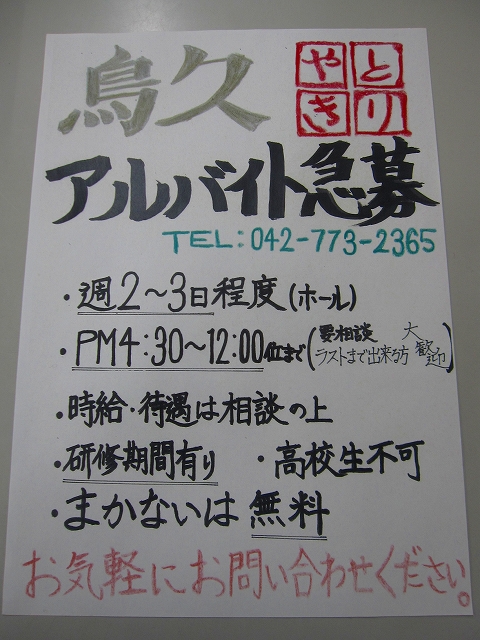 鳥久
やきとり
アルバイト急募
TEL:042-773-2365
・週2〜3日程度(ホール)
・PM4:30〜12:00位まで(要相談 ラストまで出来る方 大歓迎)
・時給・待遇は相談の上
・研修期間有り ・高校生不可
・まかないは無料
お気軽にお問い合わせください。